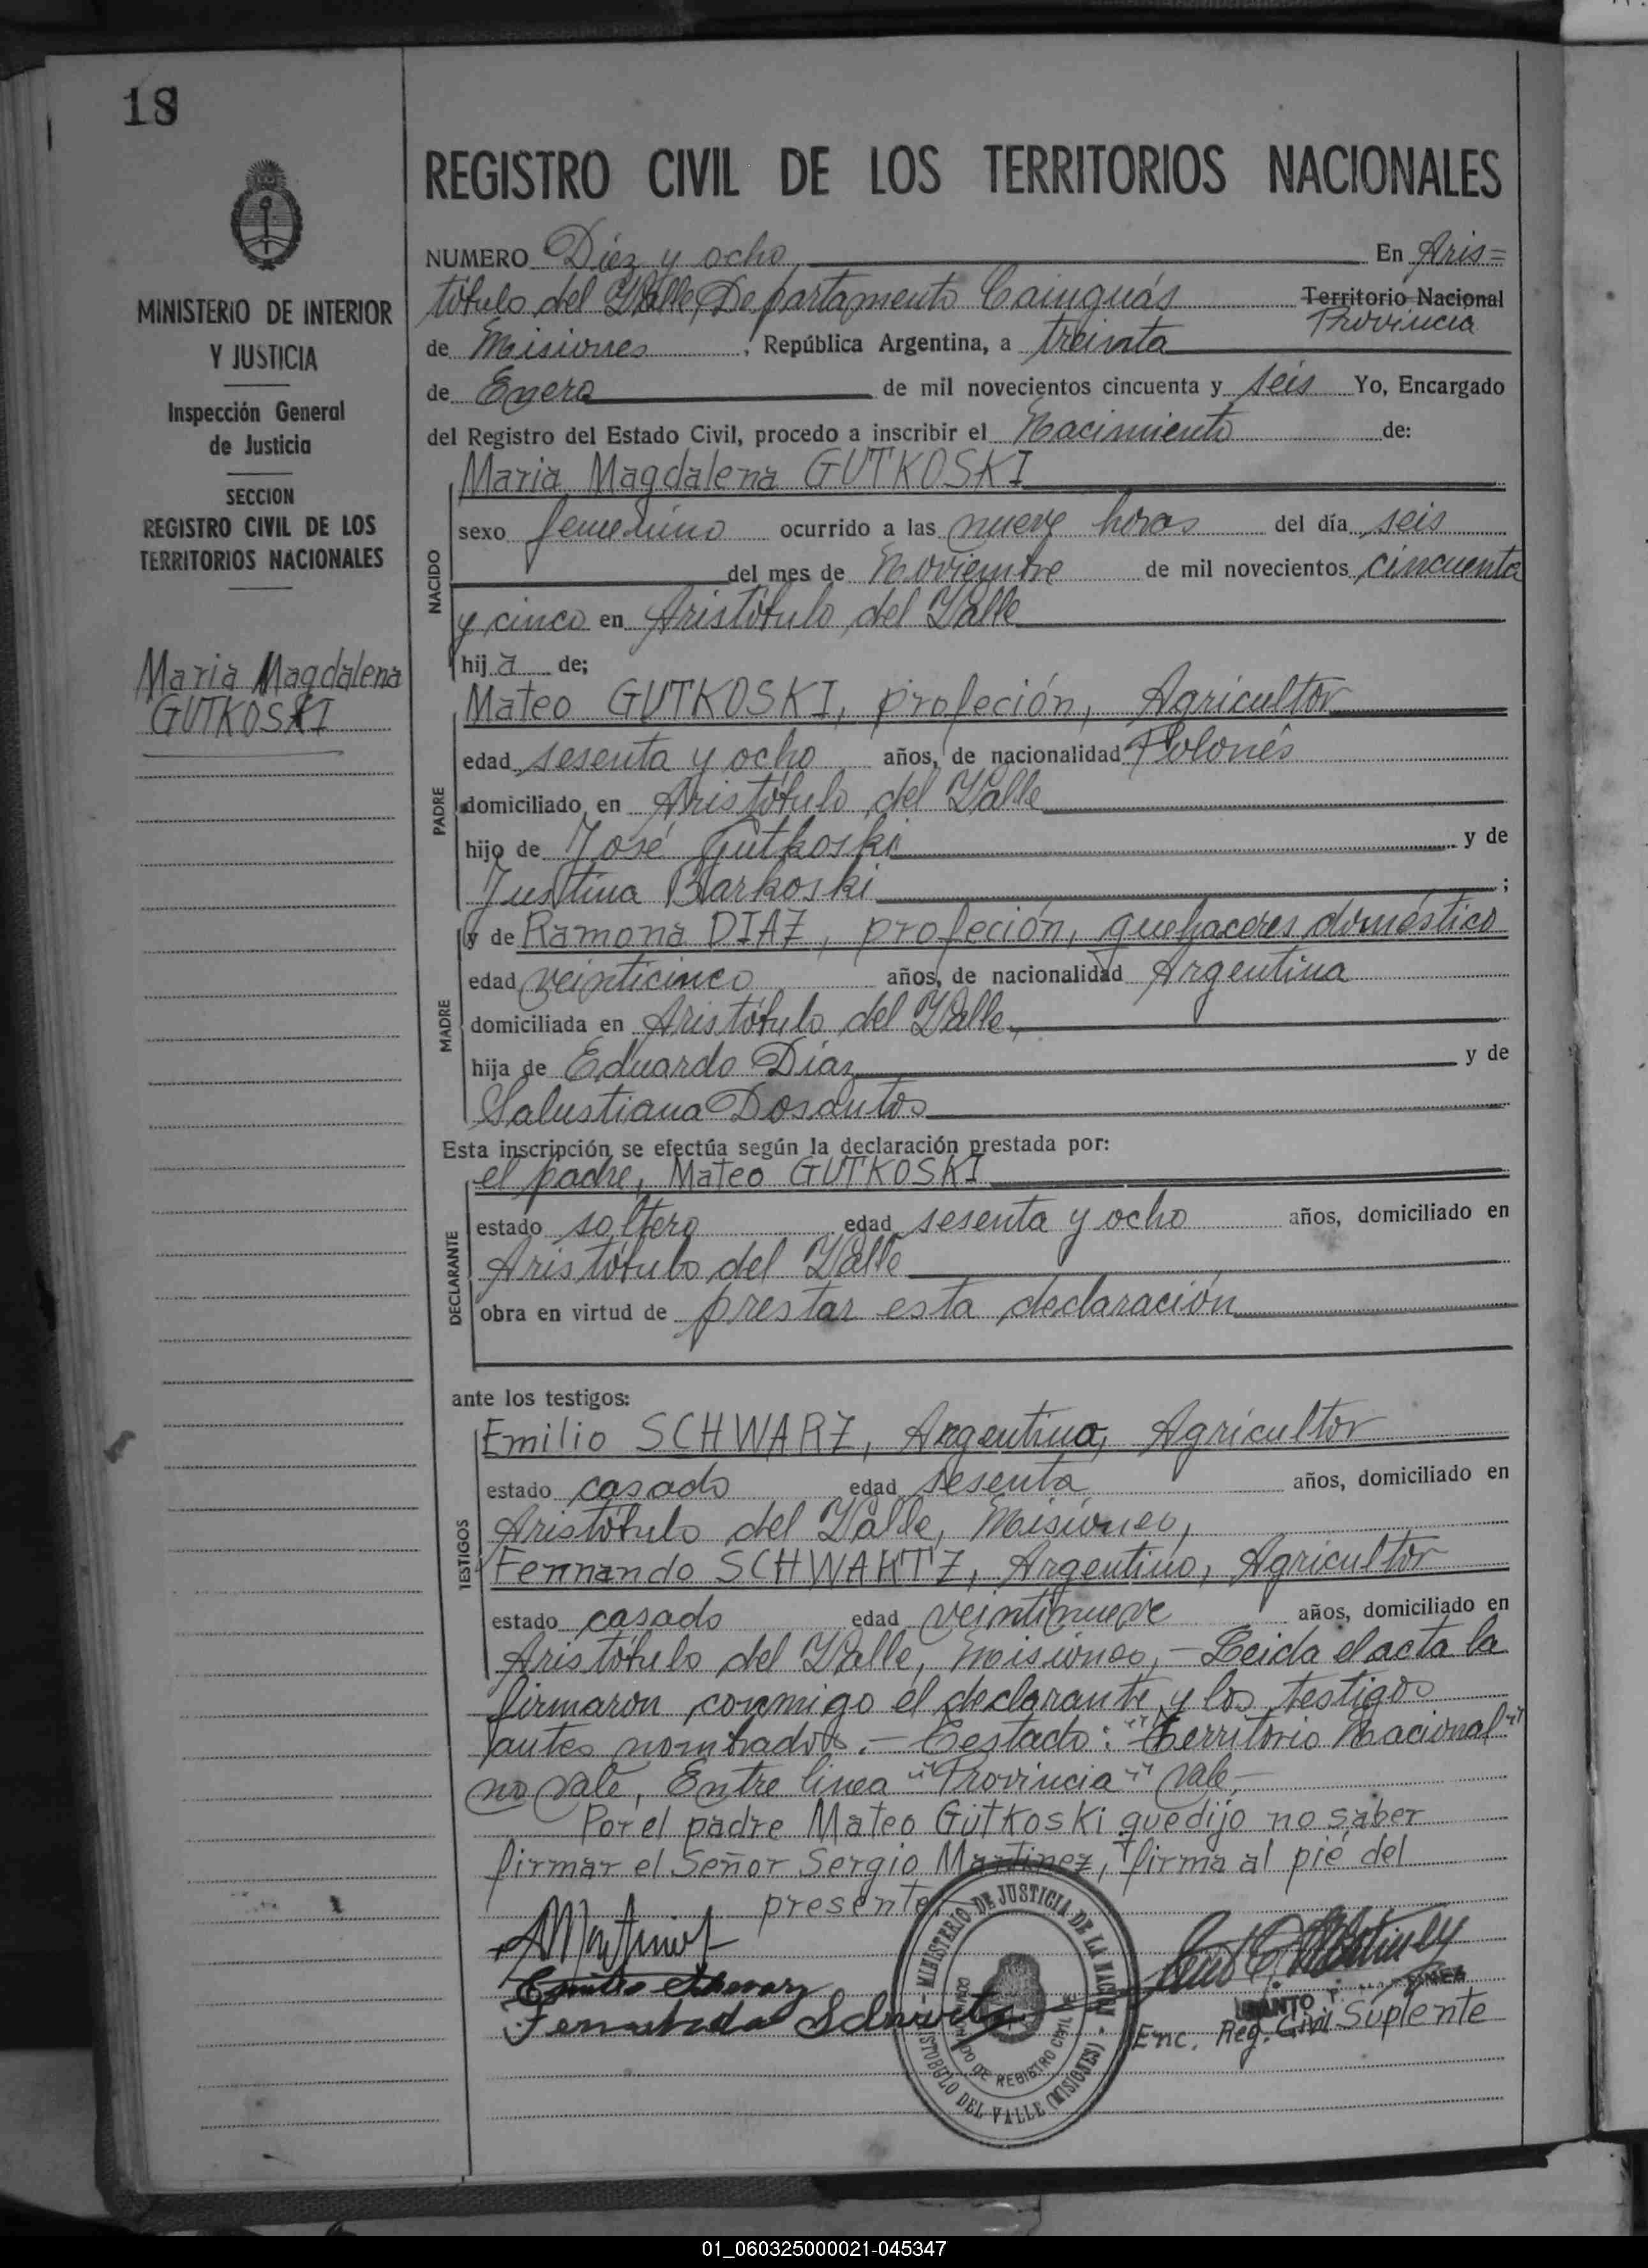 18
REGISTRO CIVIL DE LOS TERRITORIOS NACIONALES
MINISTERIO DE INTERIOR
Y JUSTICIA
Inspección General
de Justicia
SECCION
REGISTRO CIVIL DE LOS
TERRITORIOS NACIONALES
Maria Magdalena
GUTKOSKI
NUMERO Diez y ocho En Aris=
tóbulo del Valle, Departamento Cainguás Territorio Nacional
Provincia
de Misiones, República Argentina, a treinta
de Enero de mil novecientos cincuenta y seis Yo, Encargado
del Registro del Estado Civil, procedo a inscribir el Nacimiento de:
NACIDO
Maria Magdalena GUTKOSKI
sexo femenino ocurrido a las nueve horas del día seis
del mes de Noviembre de mil novecientos cincuenta
y cinco en Aristóbulo del Valle
hija de;
PADRE
Mateo GUTKOSKI, profeción, Agricultor
edad sesenta y ocho años, de nacionalidad Polonés
domiciliado en Aristóbulo del Valle
hijo de José Gutkoski y de
Justina Barkoski ;
MADRE
y de Ramona DIAZ, profeción, quehaceres doméstico
edad veinticinco años, de nacionalidad Argentina
domiciliada en Aristóbulo del Valle,
hija de Eduardo Díaz y de
Salustiana Dosantos
Esta inscripción se efectúa según la declaración prestada por:
DECLARANTE
el padre, Mateo GUTKOSKI
estado soltero edad sesenta y ocho años, domiciliado en
Aristóbulo del Valle
obra en virtud de prestar esta declaración
ante los testigos:
TESTIGOS
Emilio SCHWARZ, Argentino, Agricultor
estado casado edad sesenta años, domiciliado en
Aristóbulo del Valle, Misiones,
Fernando SCHWARTZ, Argentino, Agricultor
estado casado edad veintinueve años, domiciliado en
Aristóbulo del Valle, Misiones, - Leida el acta la
firmaron conmigo el declarante y los testigos
antes nombrados.- Testado: "Territorio Nacional"
no vale, Entre linea "Provincia" vale.-
Por el padre Mateo Gutkoski que dijo no saber
firmar el Señor Sergio Martinez, firma al pié del
presente
MINISTERIO DE JUSTICIA DE LA NACION
DE REGISTRO CIVIL
DEL VALLE (MISIONES)
Fernando
SANTO
Enc. Reg. Civil Suplente
01_060325000021-045347